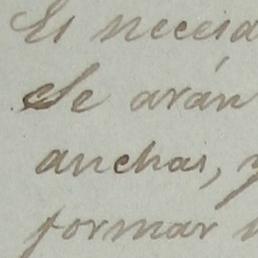 Es necesa
Se arán
anchas, y
formar